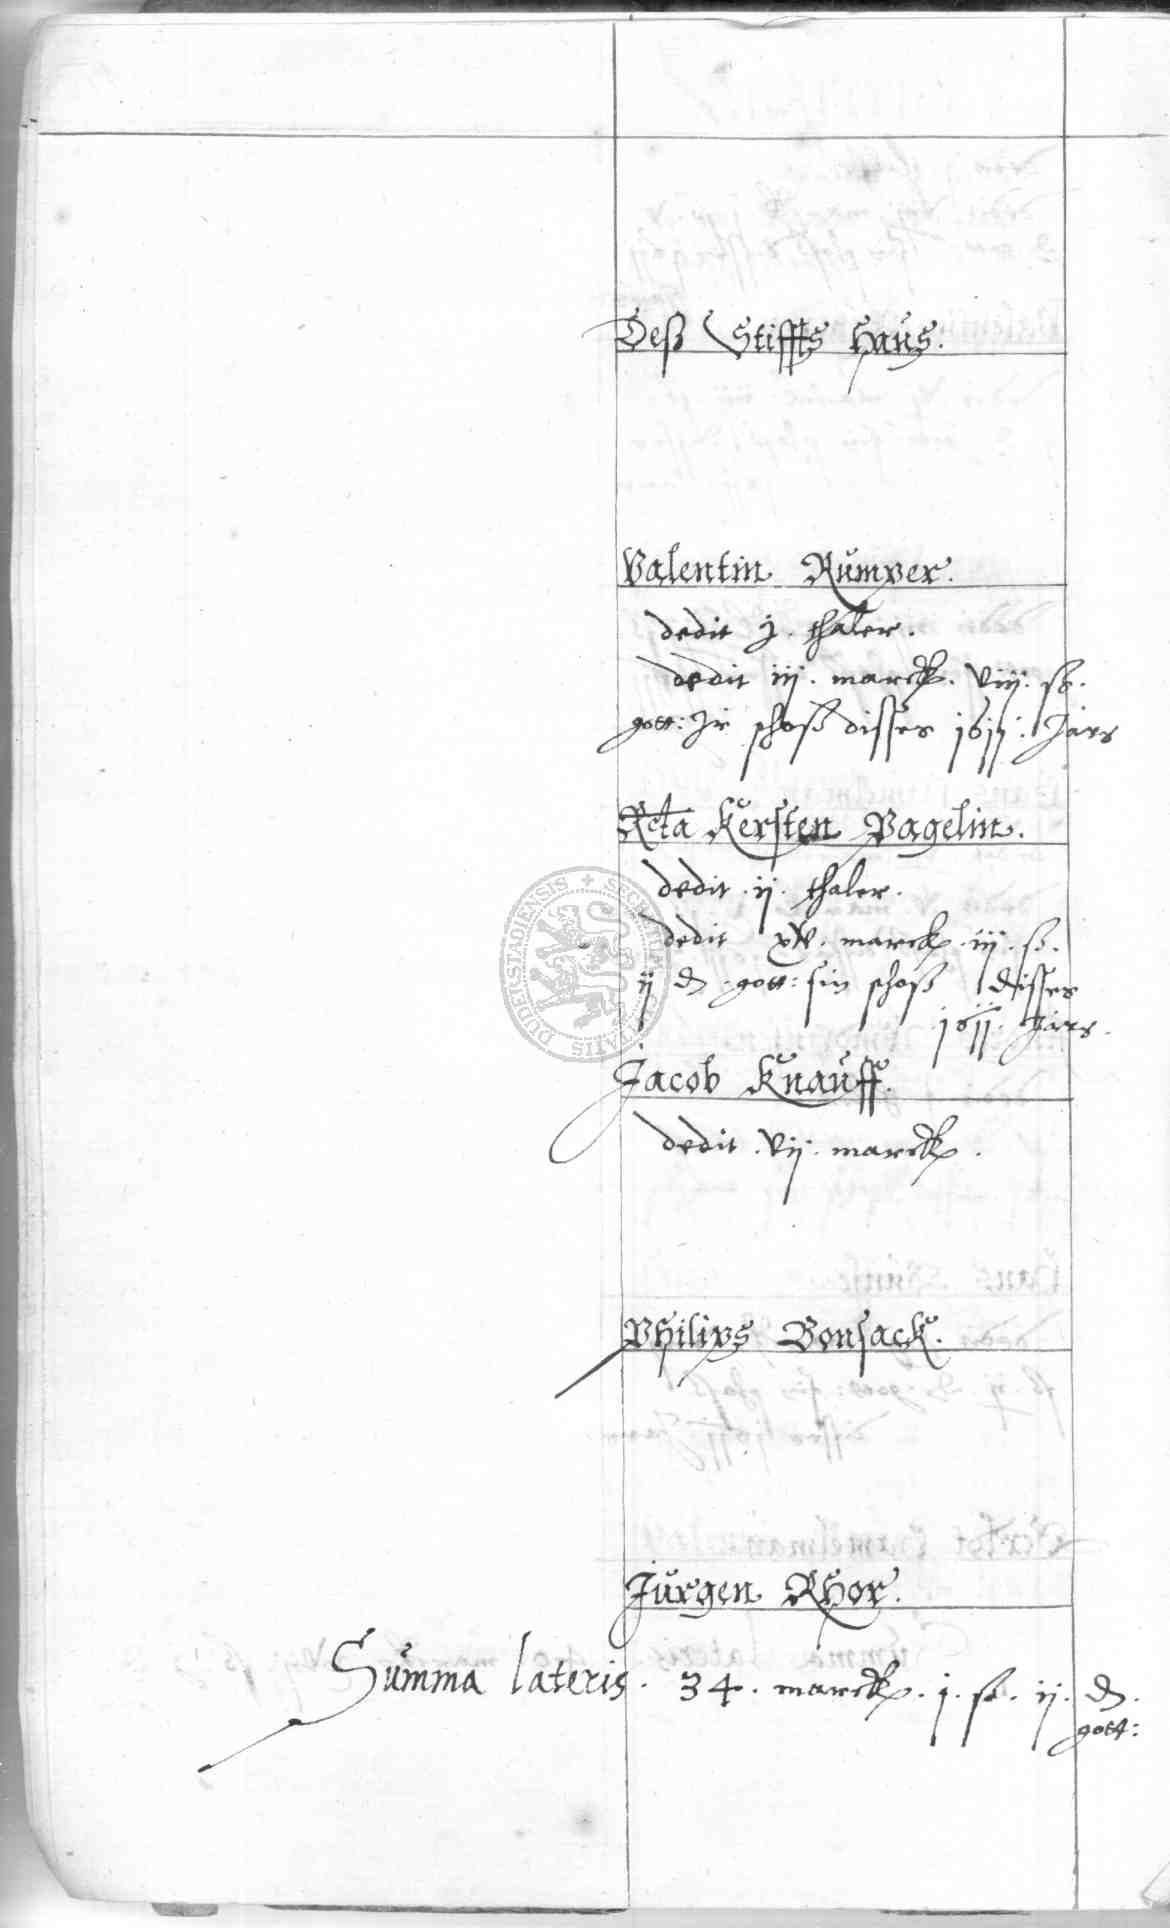 Deß Stiffts Haus.
Valentin Rumper.
dedit j. thaler.
dedit iij. marck. viij. ß.
gott: Jr schoß disses 1611. Jars
Relicta Kersten Pagelin.
dedit .ij. thaler.
dedit xv. marck .iij. ß.
ij d. gott: sin schoß disses
1611. Jars.
Jacob Knauff.
dedit .vij. marck.
Philips Bonsack.
Jurgen Rhor.
Summa lateris. 34. marck. j. ß. ij. d.
gott:
DUDERSTADIENSIS + CIVITATIS